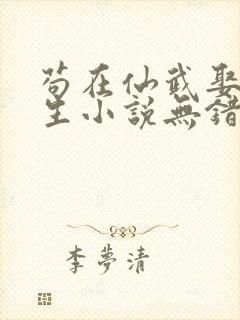 苟在仙武娶
生小說無錯
李夢清